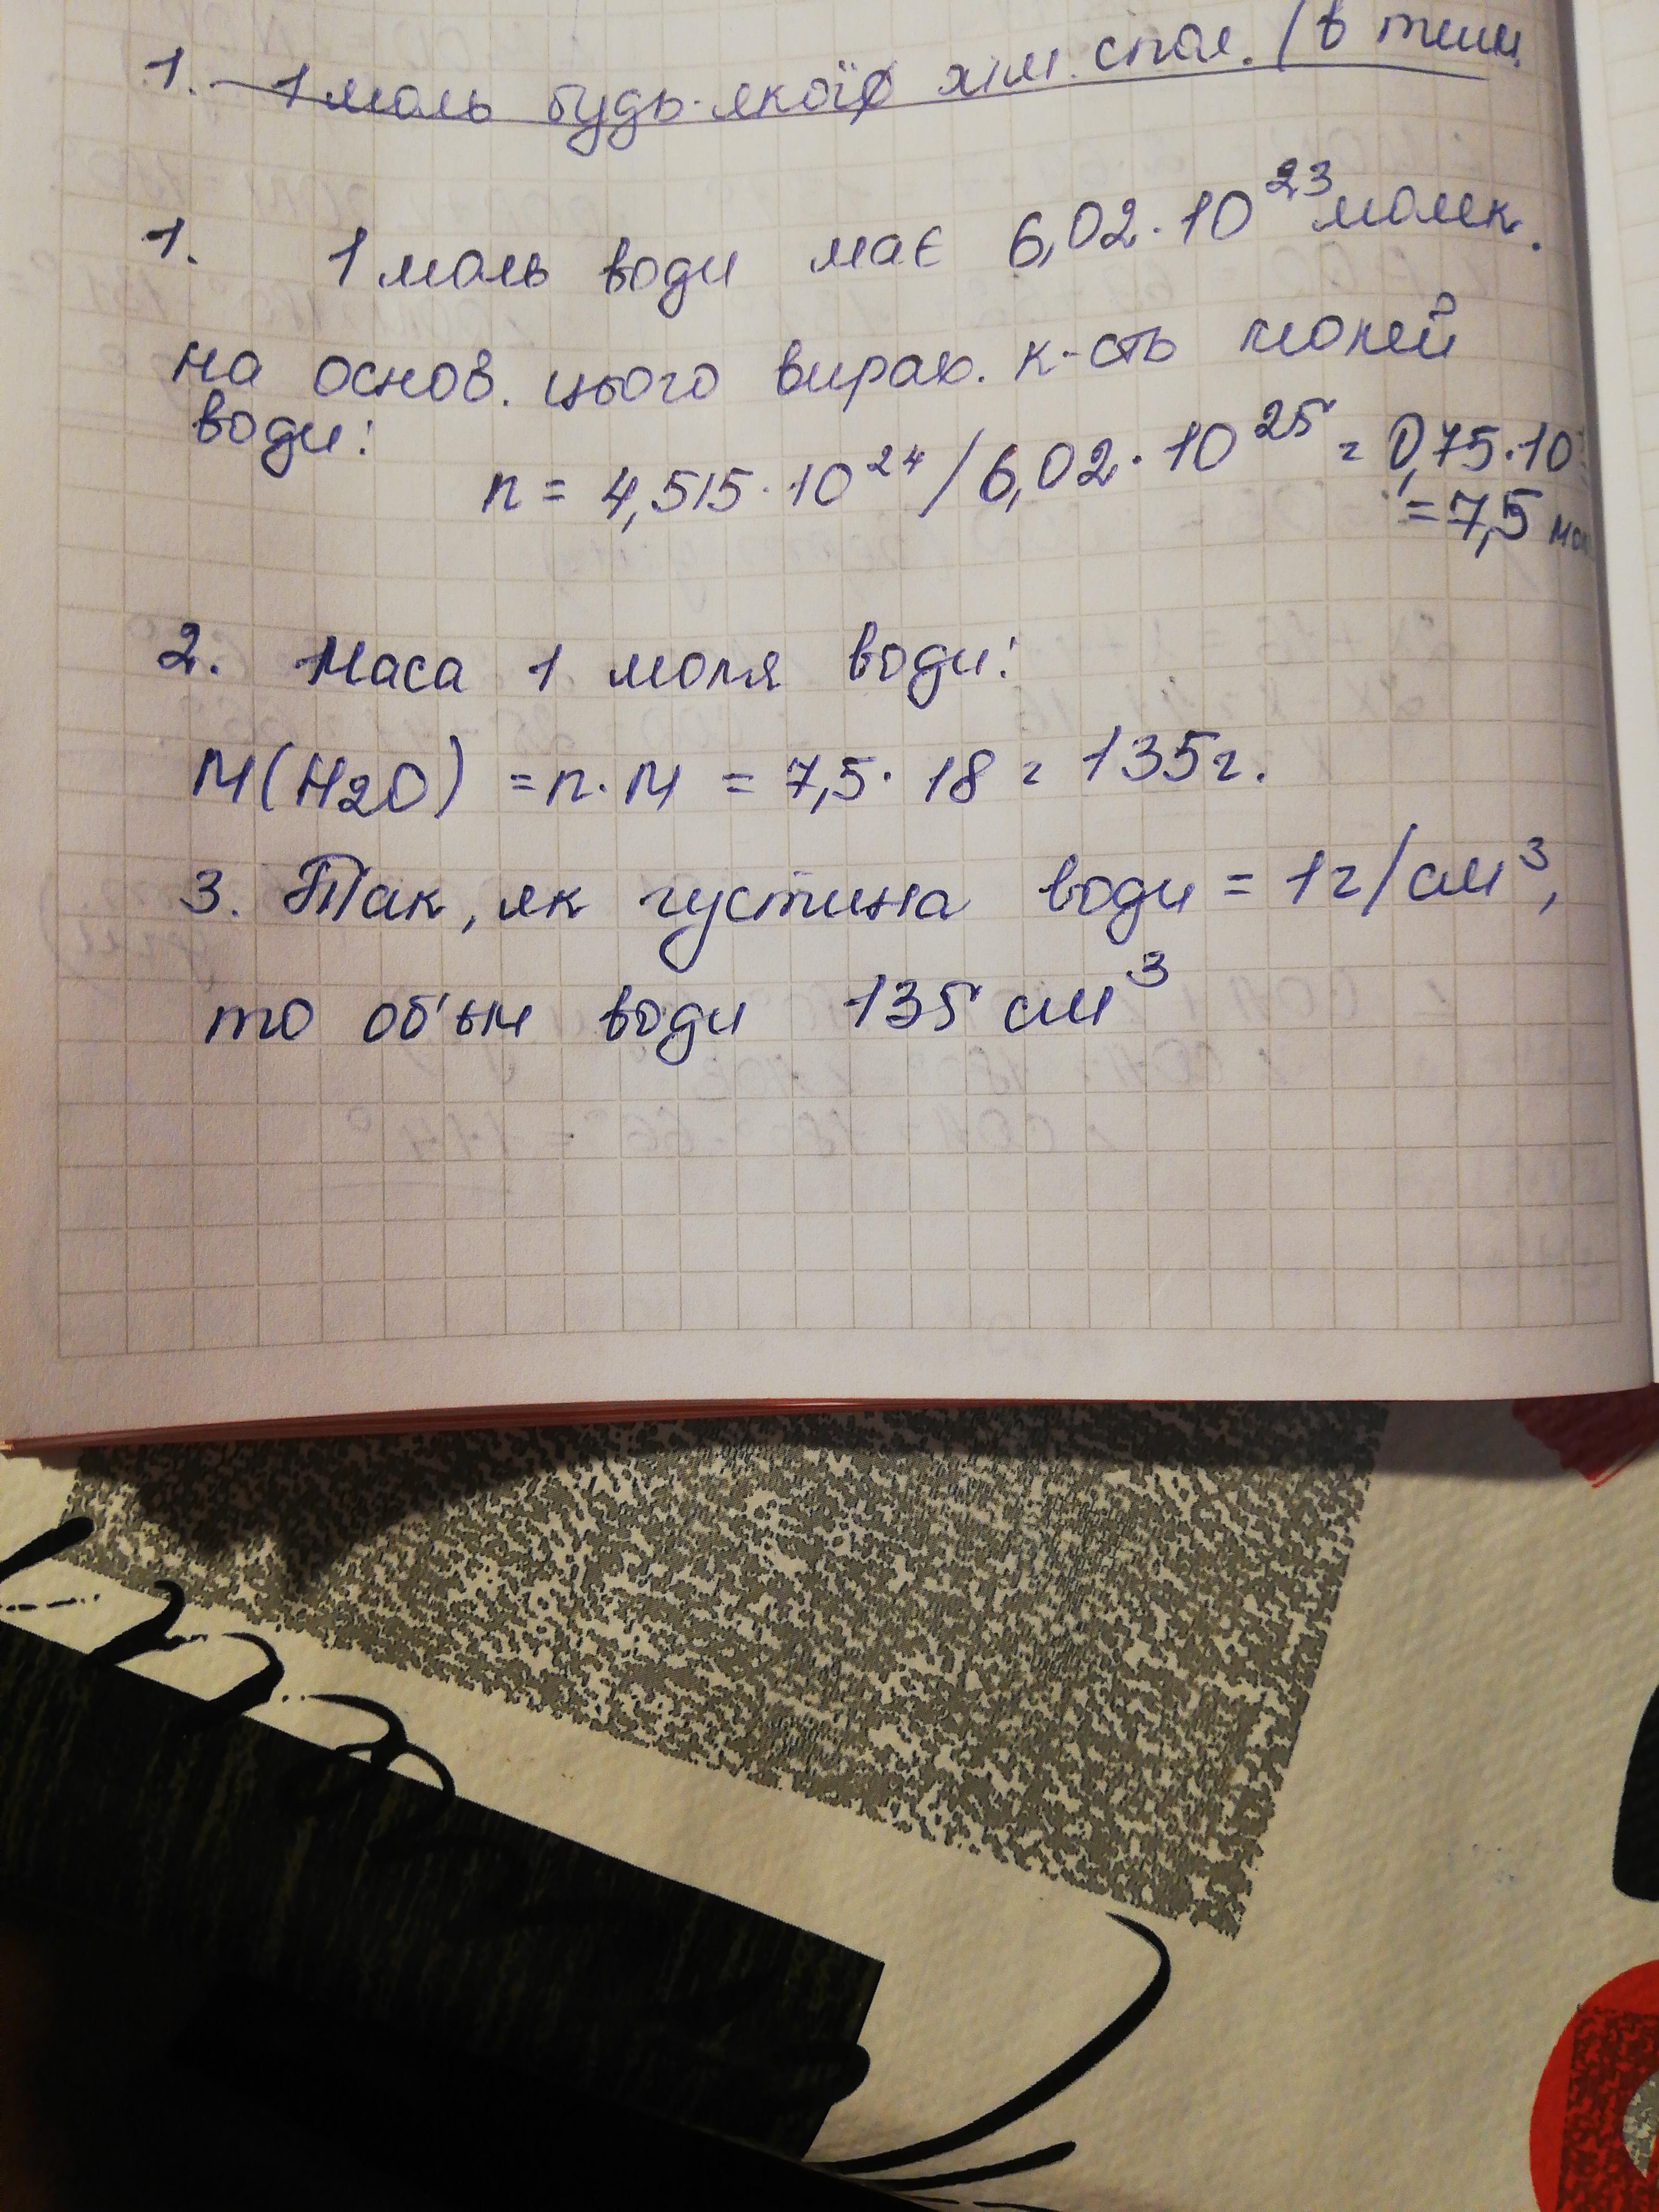 1. 1 моль будь-якої хім. спол. (в тому
1. 1 моль води має 6,02·10²³ молек.
на основ. цього вирах. к-сть молей
води:
n = 4,515·10²⁴/6,02·10²⁵ = 0,75·10
= 7,5 мол
2. Маса 1 моля води:
M(H2O) = n·M = 7,5·18 = 135г.
3. Так, як густина води = 1г/см³,
то об'єм води 135 см³